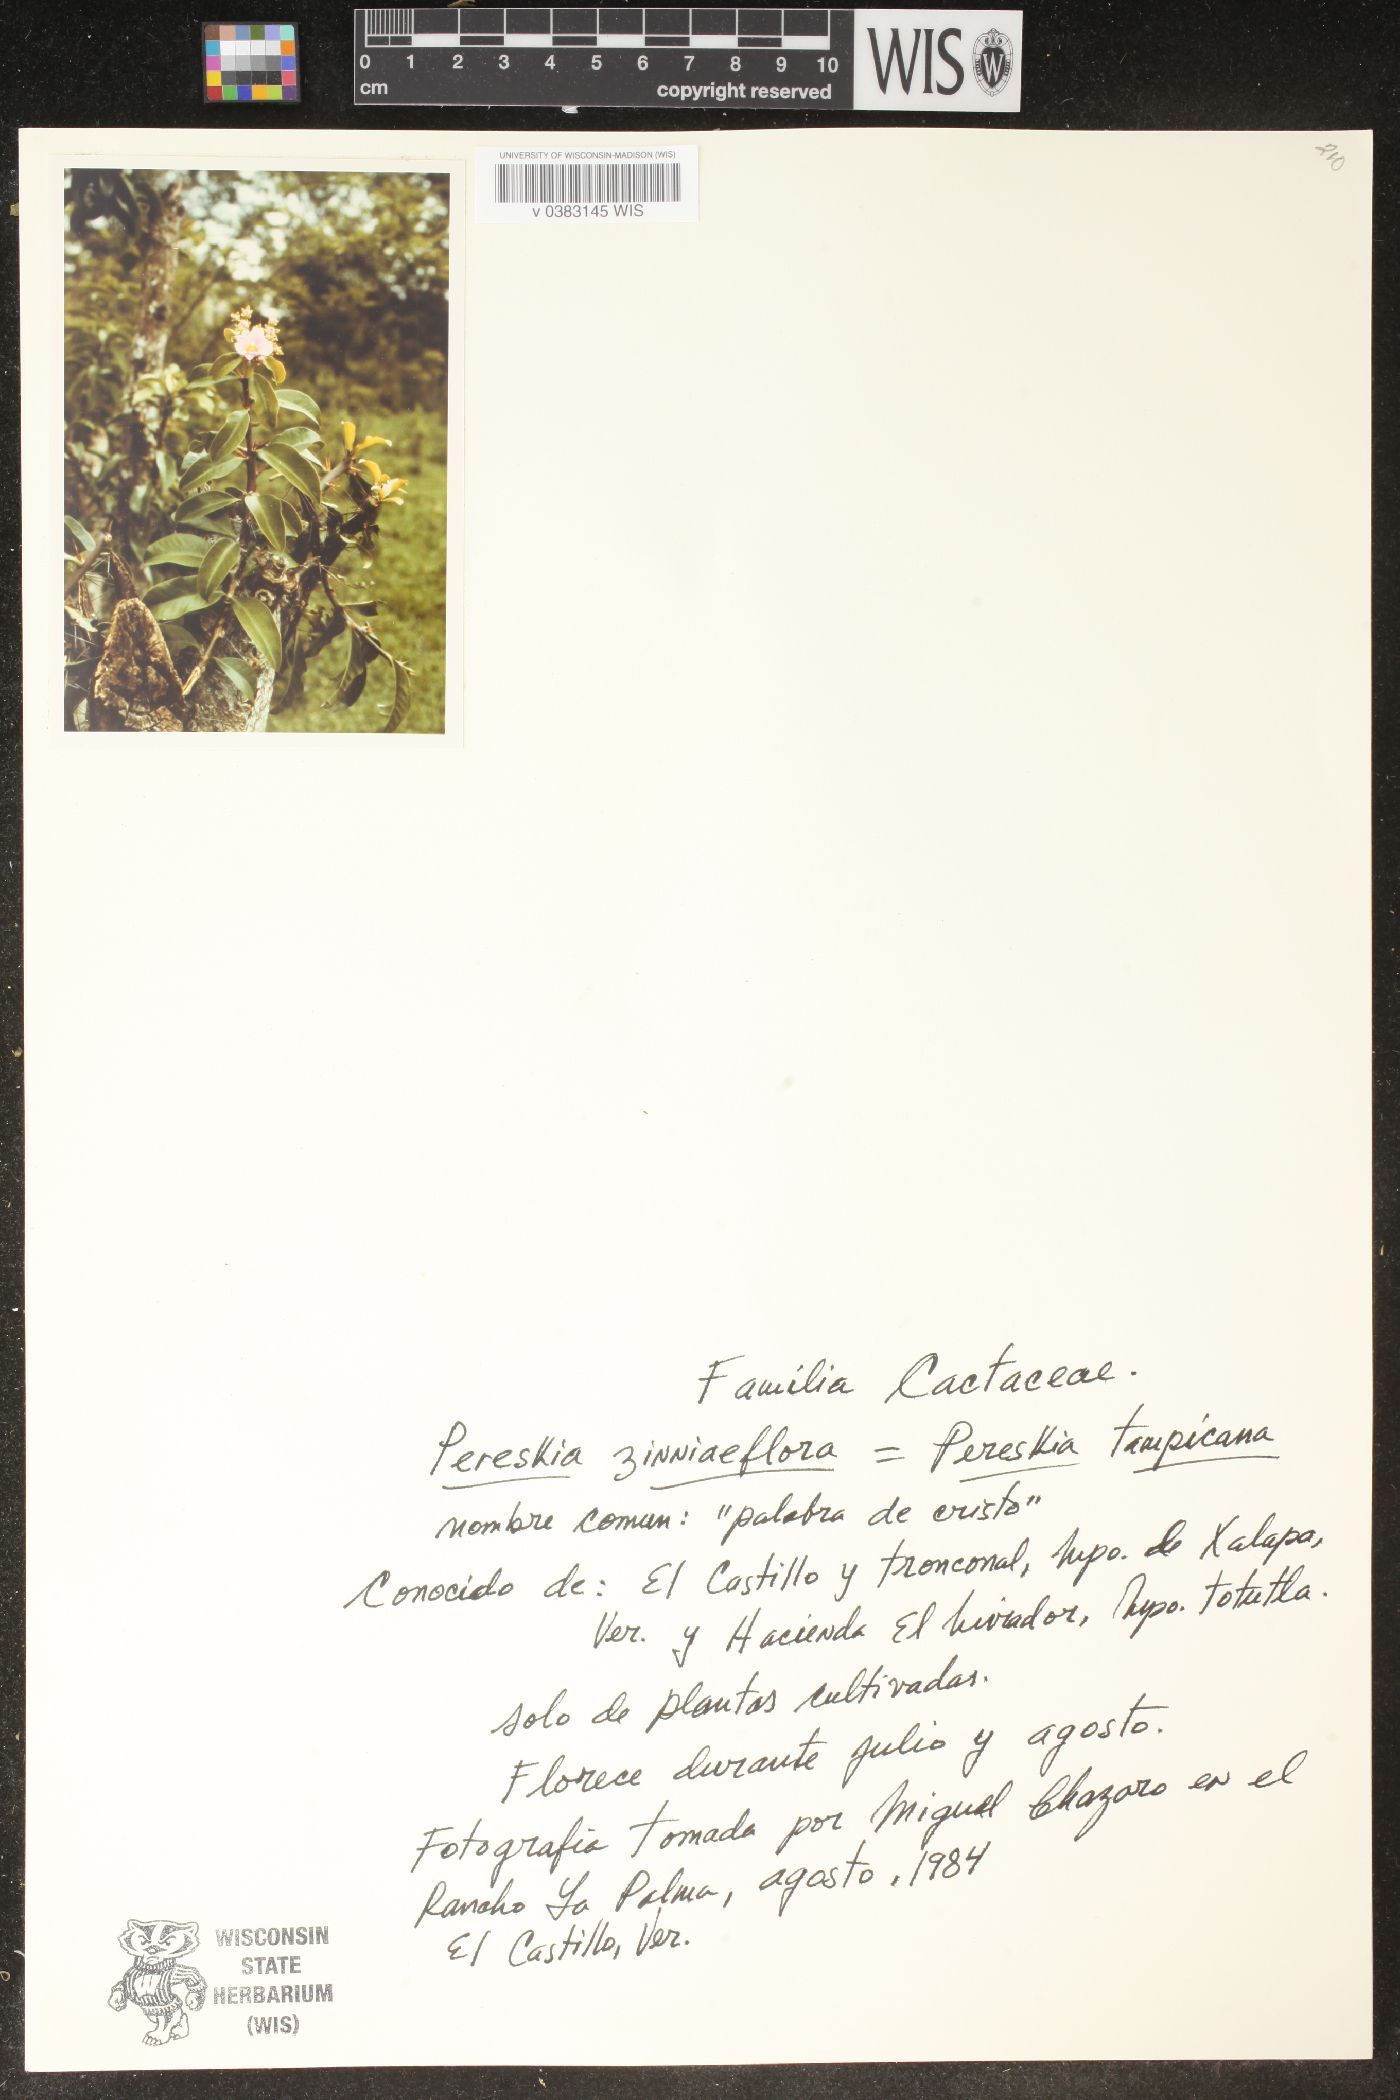 0 1 2 3 4 5 6 7 8 9 10
cm
copyright reserved
WIS
W
UNIVERSITY OF WISCONSIN-MADISON (WIS)
v 0383145 WIS
210
Familia Cactaceae.
Pereskia zinniaeflora = Pereskia tampicana
nombre comun: "palabra de cristo"
Conocido de: El Castillo y tronconal, Mpo. de Xalapa,
Ver. y Hacienda El Mirador, Mpo. totutla.
solo de plantas cultivadas.
Florece durante julio y agosto.
Fotografia tomada por Miguel Chazaro en el
Rancho La Palma, agosto, 1984
El Castillo, Ver.
WISCONSIN
STATE
HERBARIUM
(WIS)